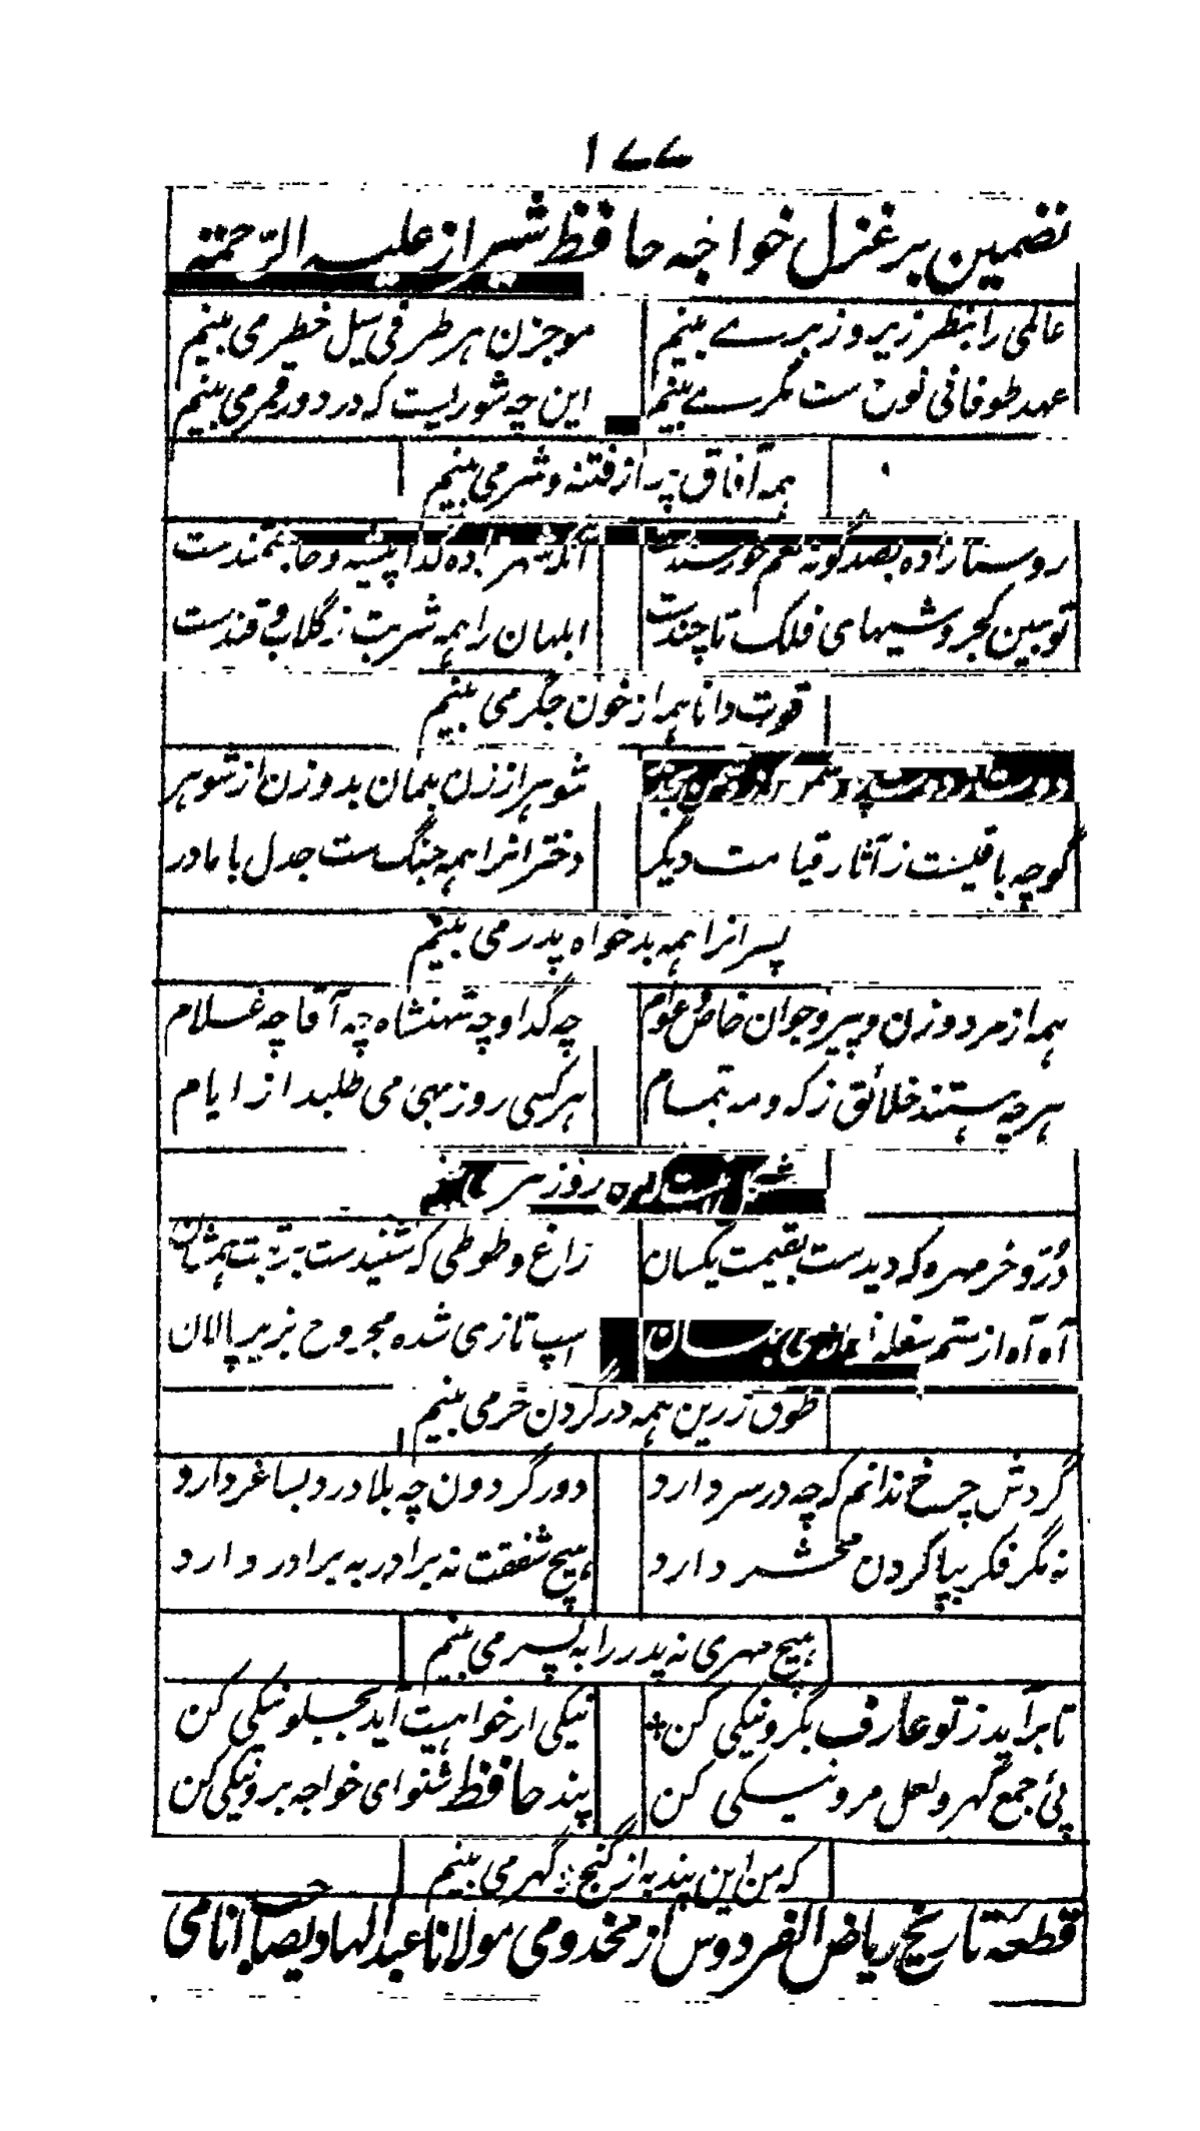 ۱۷۷
تضمین بر غزل خواجہ حافظ شیراز علیہ الرحمتہ
عالمی را بنظر زیر و زبر مے بینم
موجزن ہر طرفی سیل خطر می بینم
عہد طوفانی نوح ست مگر مے بینم
این چہ شوریست کہ در دور قمر می بینم
ہمہ آفاق پر از فتنہ و شر می بینم
روستا زادہ بصد گونہ نعم خورسندست
آنکہ شہرزادہ گدا پیشہ و حاجتمندست
تو ببین کجروشیهای فلک تا چندست
ابلہان را ہمہ شربت ز گلاب و قندست
قوت دانا ہمہ از خون جگر می بینم
شوہر از زن بگمان بد و زن از شوہر
گو چہ باقیست ز آثار قیامت دیگر
دختر انرا ہمہ جنگ ست جدل با مادر
پسر انرا ہمہ بدخواہ پدر می بینم
ہمہ از مرد و زن و پیر و جوان خاص و عوام
چہ گدا و چہ شہنشاہ چہ آقا چہ غلام
ہر چہ ہستند خلائق ز کہ و مہ تمام
ہر کسی روز بہی می طلبد از ایام
روز
دُرّ و خرمہرہ کہ دیدست بقیمت یکسان
زاغ و طوطی کہ شنیدست برتبت ہمشان
آہ آہ از ستم سفلہ
اسپ تازی شدہ مجروح بزیر پالان
طوق زرین ہمہ در گردن خر می بینم
گردش چرخ ندانم کہ چہ در سر دارد
دور گردون چہ بلا درد بساغر دارد
نہ مگر فکر بپا کردن محشر دارد
ہیچ شفقت نہ برادر بہ برادر دارد
ہیچ مہری نہ پدر را بہ پسر می بینم
تا برآید ز تو عارف بگرو نیکی کن
نیکی ار خواہیت آید بجلو نیکی کن
پئ جمع گہر و لعل مرو نیکی کن
پند حافظ شنو ای خواجہ برو نیکی کن
کہ من این پند بہ از گنج گہر می بینم
قطعہ تاریخ ریاض الفردوس از مخدومی مولانا عبد الہادی صاحب انامی